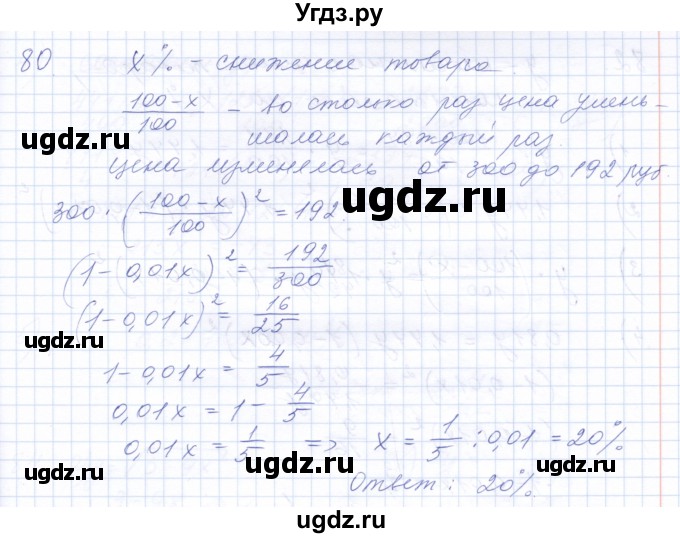 Угдз.ру
80 x% - снижение товара.
(100-x)/100 - во столько раз цена умень-
шалась каждый раз.
ugdz.ru ugdz.ru
цена изменялась от 300 до 192 руб.
ugdz.ru
300 · ((100-x)/100)² = 192
(1-0,01x)² = 192/300
(1-0,01x)² = 16/25
ugdz.ru ugdz.ru
1-0,01x = 4/5
0,01x = 1 - 4/5
0,01x = 1/5 => x = 1/5 : 0,01 = 20%
ugdz.ru ugdz.ru
Ответ: 20%.
ugdz.ru